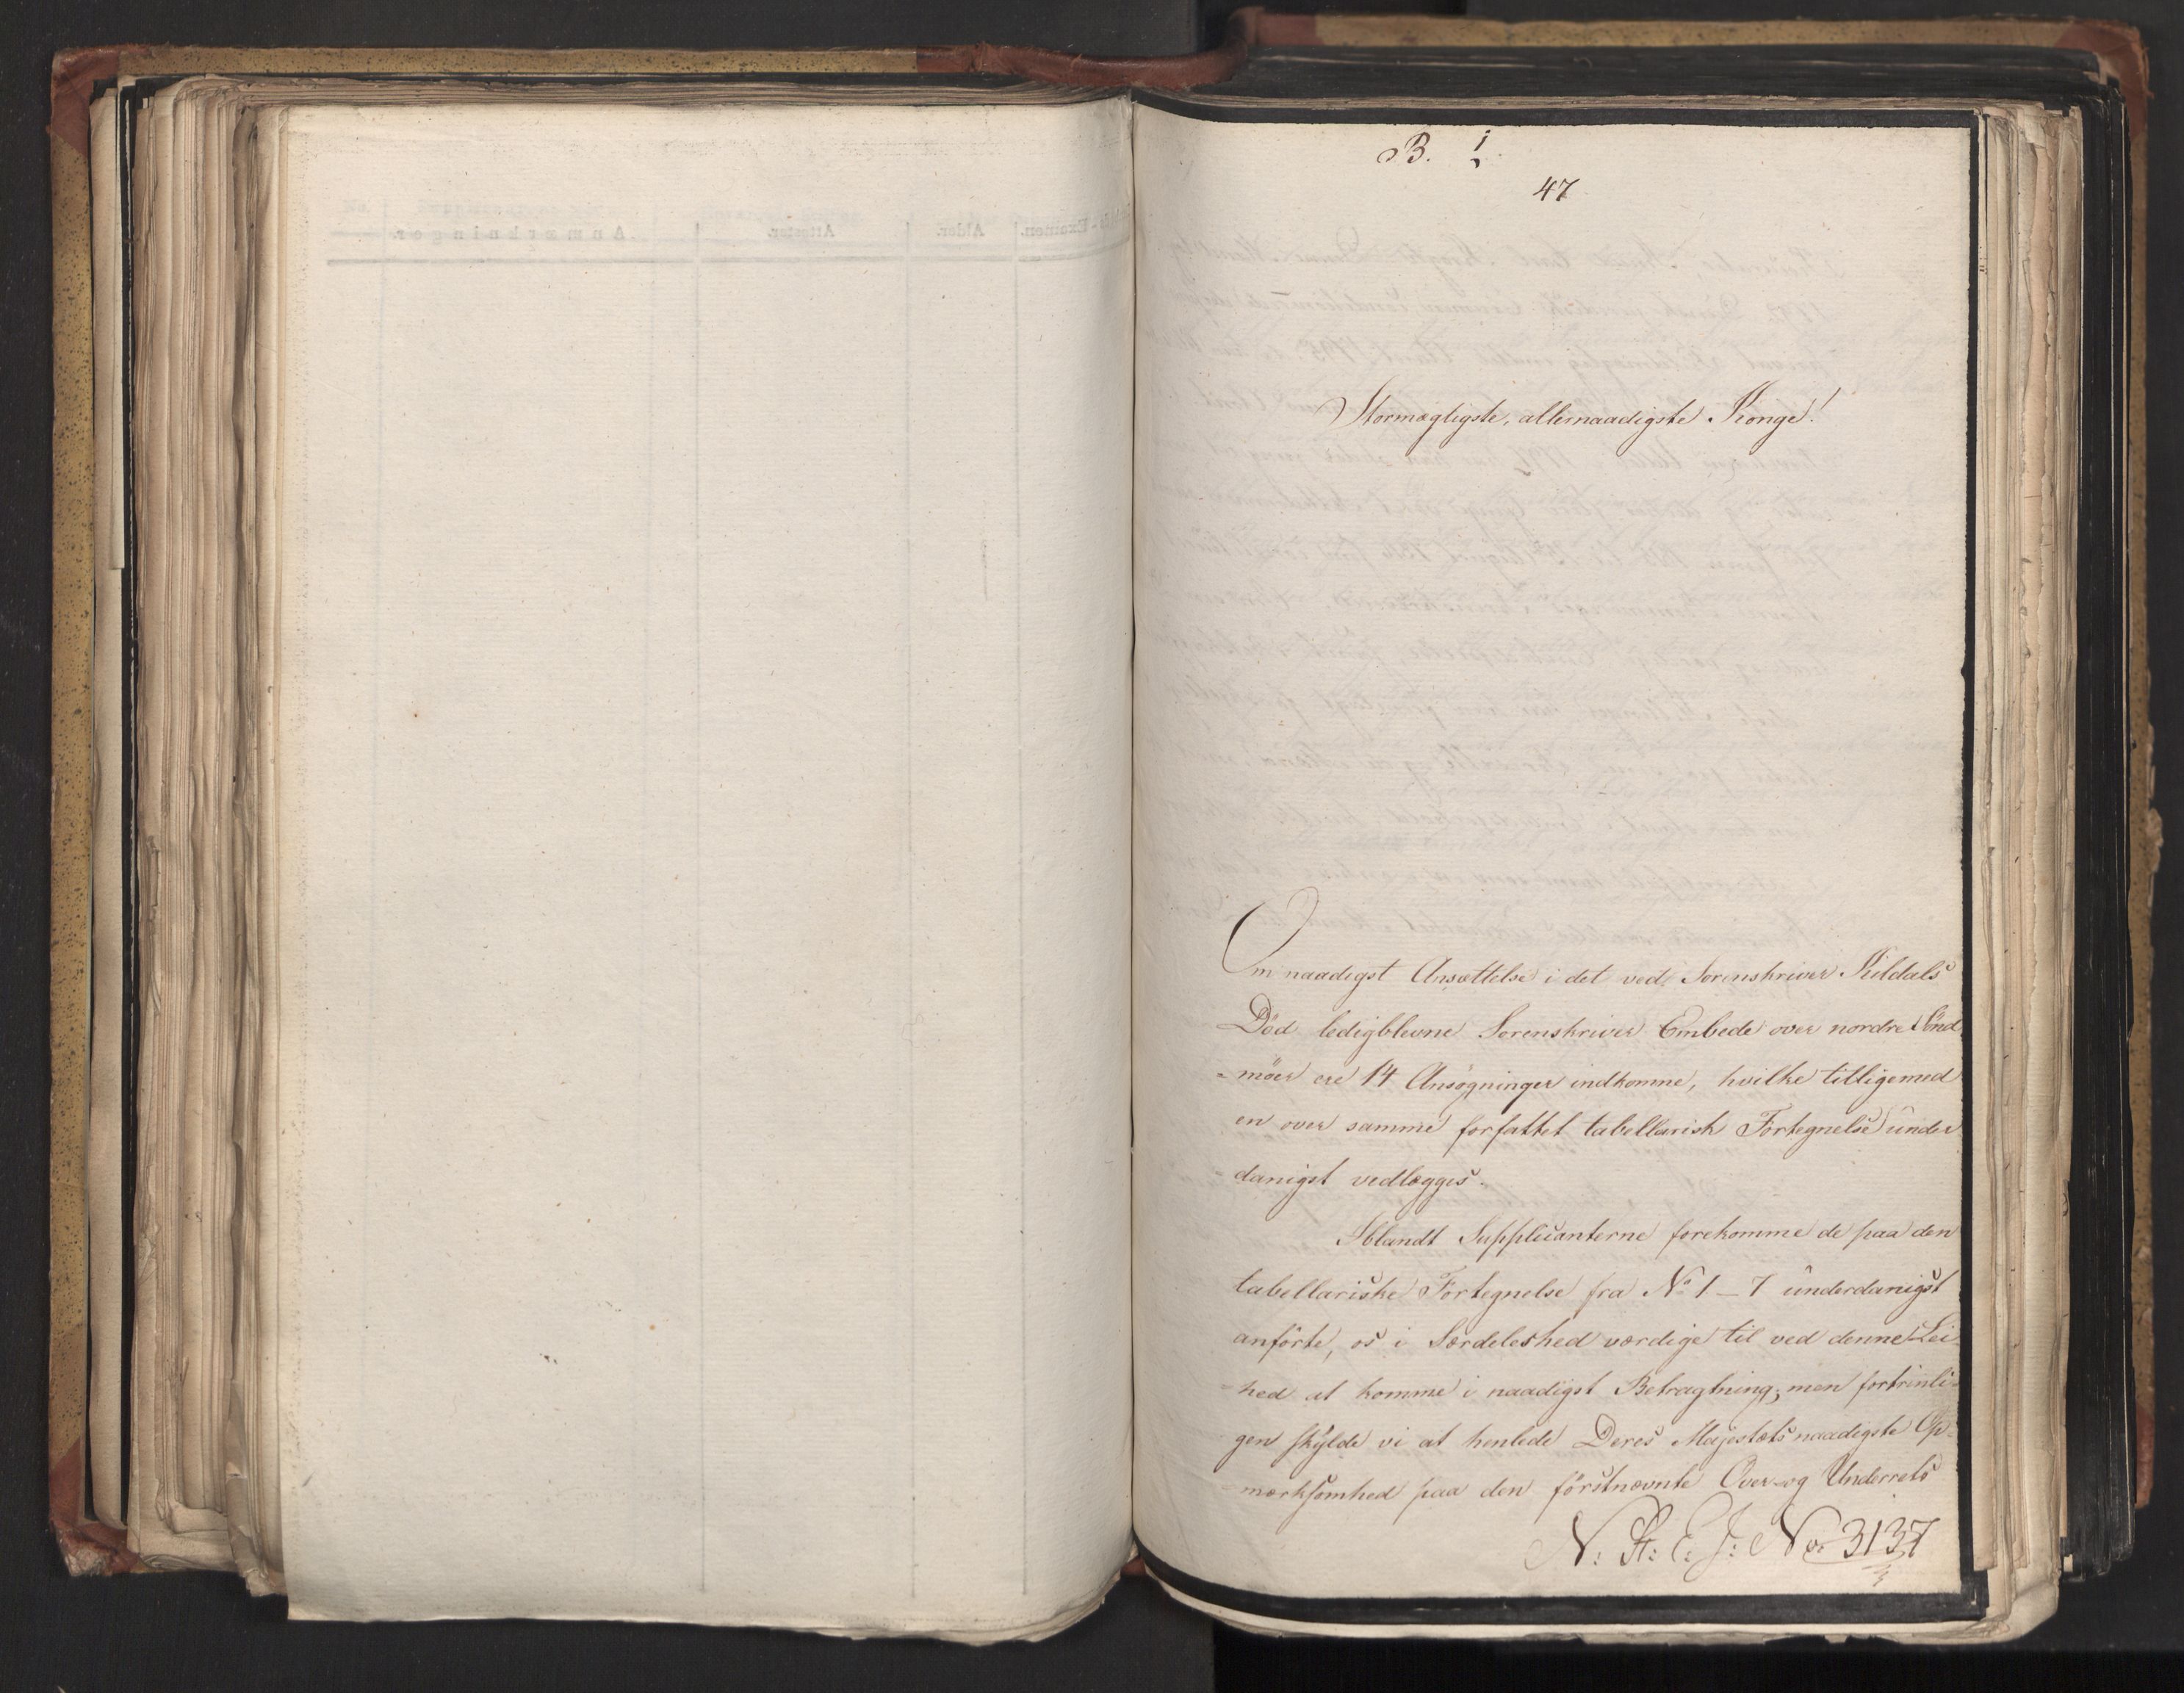 B. 1.
47
Stormægtigste, allernaadigste Konge!
Om naadigst Ansættelse i det ved Sorenskriver Kildals
Död ledigblevne Sorenskriver Embede over nordre Sönd
=möer ere 14 Ansögninger indkomne, hvilke tilligemed
en over samme forfattet tabellarisk Fortegnelse under
danigst vedlægges.
Iblandt Supplicanterne forekomme de paa den
tabellariske Fortegnelse fra No 1 - 7 underdanigst
anförte, os i Særdeleshed værdige til ved denne Lei
=hed at komme i naadigst Betragtning; men fortrinli=
gen skylde vi at henlede Deres Majestæts naadigste Op=
mærksomhed paa den förstnævnte Over- og Underrets
N: St: C: J: No: 3137